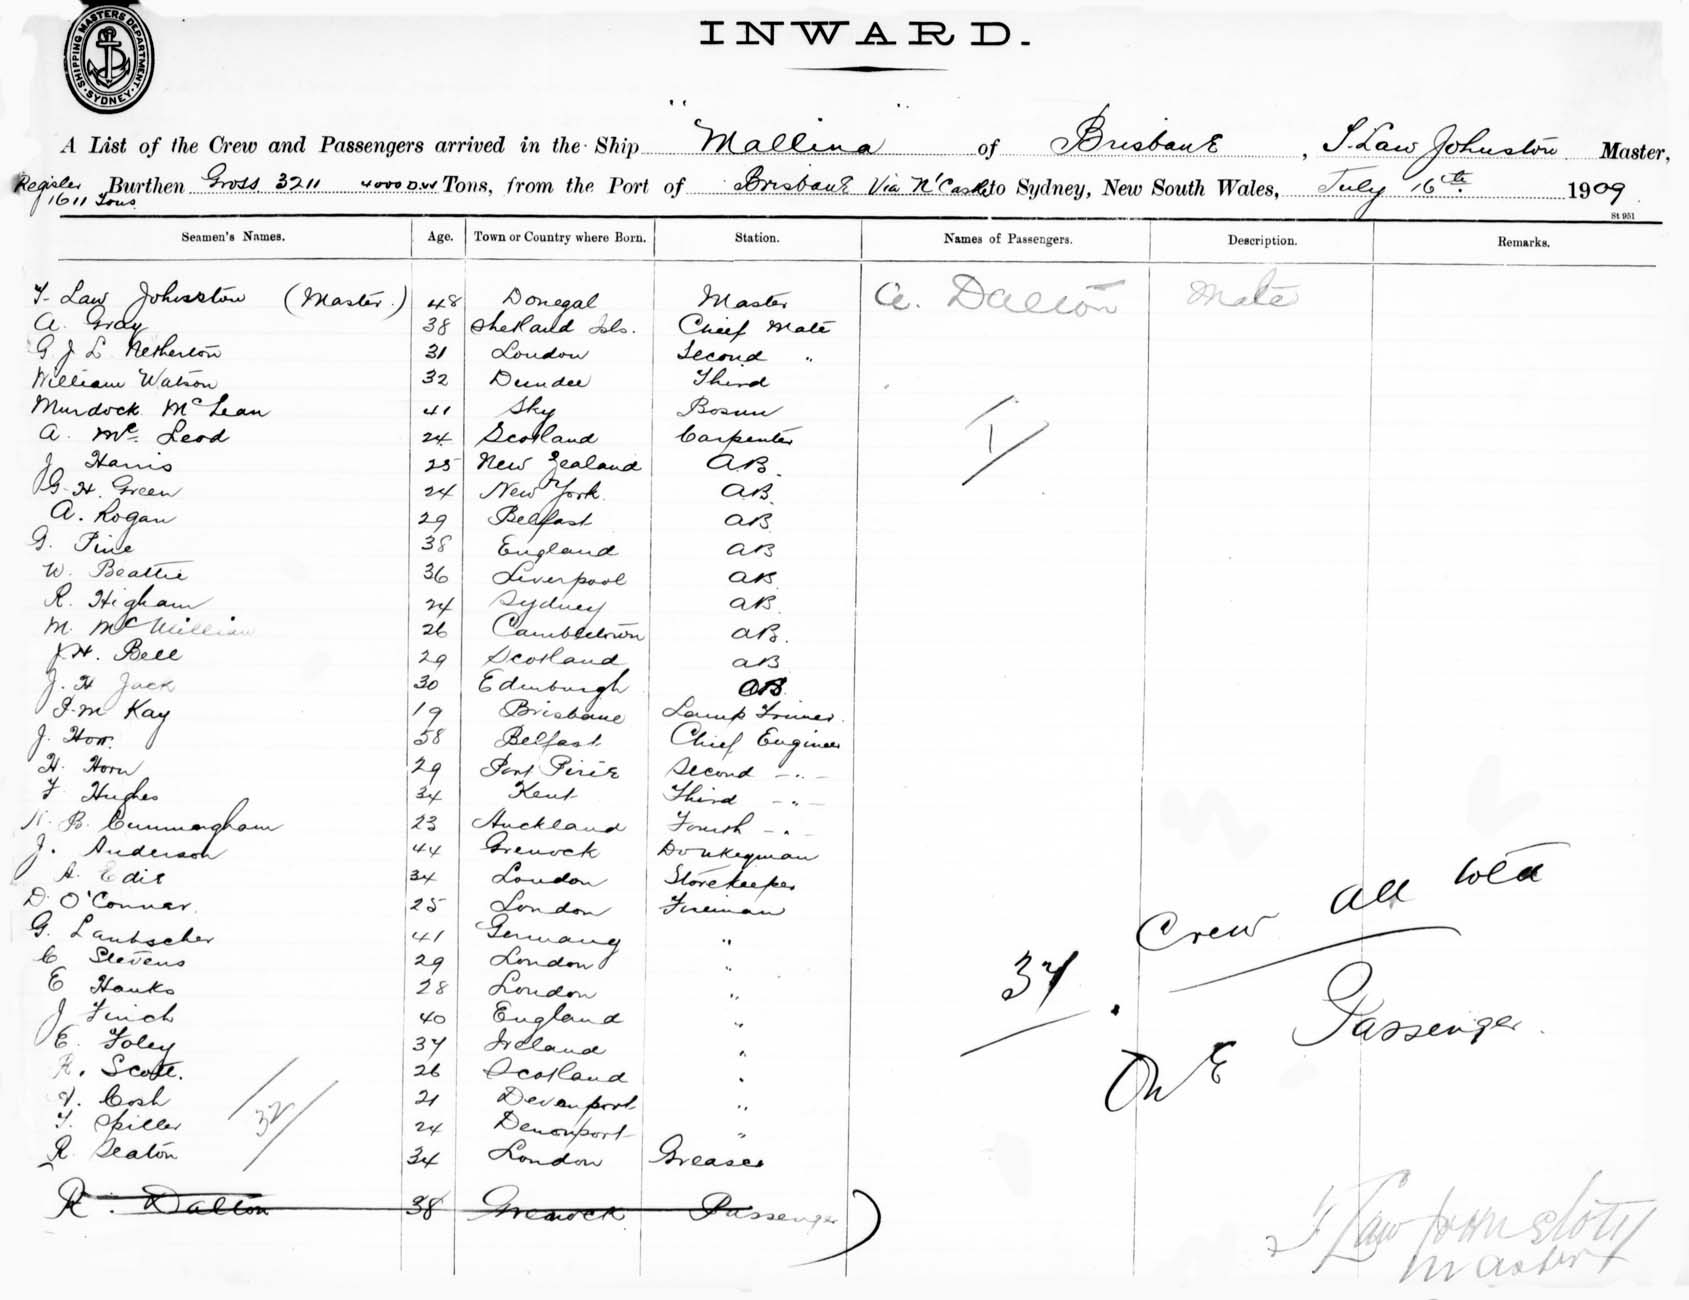 SHIPPING MASTERS DEPARTMENT
SYDNEY
INWARD.
A List of the Crew and Passengers arrived in the Ship "Mallina" of Brisbane, T. Law Johnston Master,
Register 1611 Tons Burthen Gross 3211 4000 D.W Tons, from the Port of Brisbane Via N'Castle to Sydney, New South Wales, July 16th 1909
St 951
Seamen's Names. Age. Town or Country where Born. Station. Names of Passengers. Description. Remarks.
T. Law Johnston (Master.) 48 Donegal Master A. Dalton Mate
A. Gray 38 Shetland Isls. Chief Mate
G J L Netherton 31 London Second "
William Watson 32 Dundee Third
Murdock McLean 41 Sky Bosun
A. Mc Leod 24 Scotland Carpenter
J Harris 25 New Zealand A.B.
G. H. Green 24 New York AB
A. Rogan 29 Belfast AB
G. Pine 38 England AB
W. Beattie 36 Liverpool AB
R. Higham 24 Sydney AB
M. McMillian 26 AB.
J H. Bell 29 Scotland AB
J. H Jack 30 Edinburgh AB
J. M Kay 19 Brisbane Lamp Trimer.
J. 58 Belfast Chief Engineer
H. Horn 29 Port Pirie Second - " -
F Hughes 34 Kent Third - " -
B. Cunningham 23 Auckland Fourth - " -
J. Anderson 44 Grenock Donkeyman
A. Edie 34 London Storekeeper
D. O'Connor. 25 London Fireman
G. Laubscher 41 Germany "
C Stevens 29 London "
E Hanks 28 London "
J Finch 40 England "
E. Foley 37 Ireland "
R. Scott. 26 Scotland "
Cosh 21 Devenport "
T. Spiller 24 Devonport "
R. Seaton 34 London Greaser
32
1
R. Dalton 38 Grenock Passenger
37 Crew all told
One Passenger.
T Law Johnston
Master